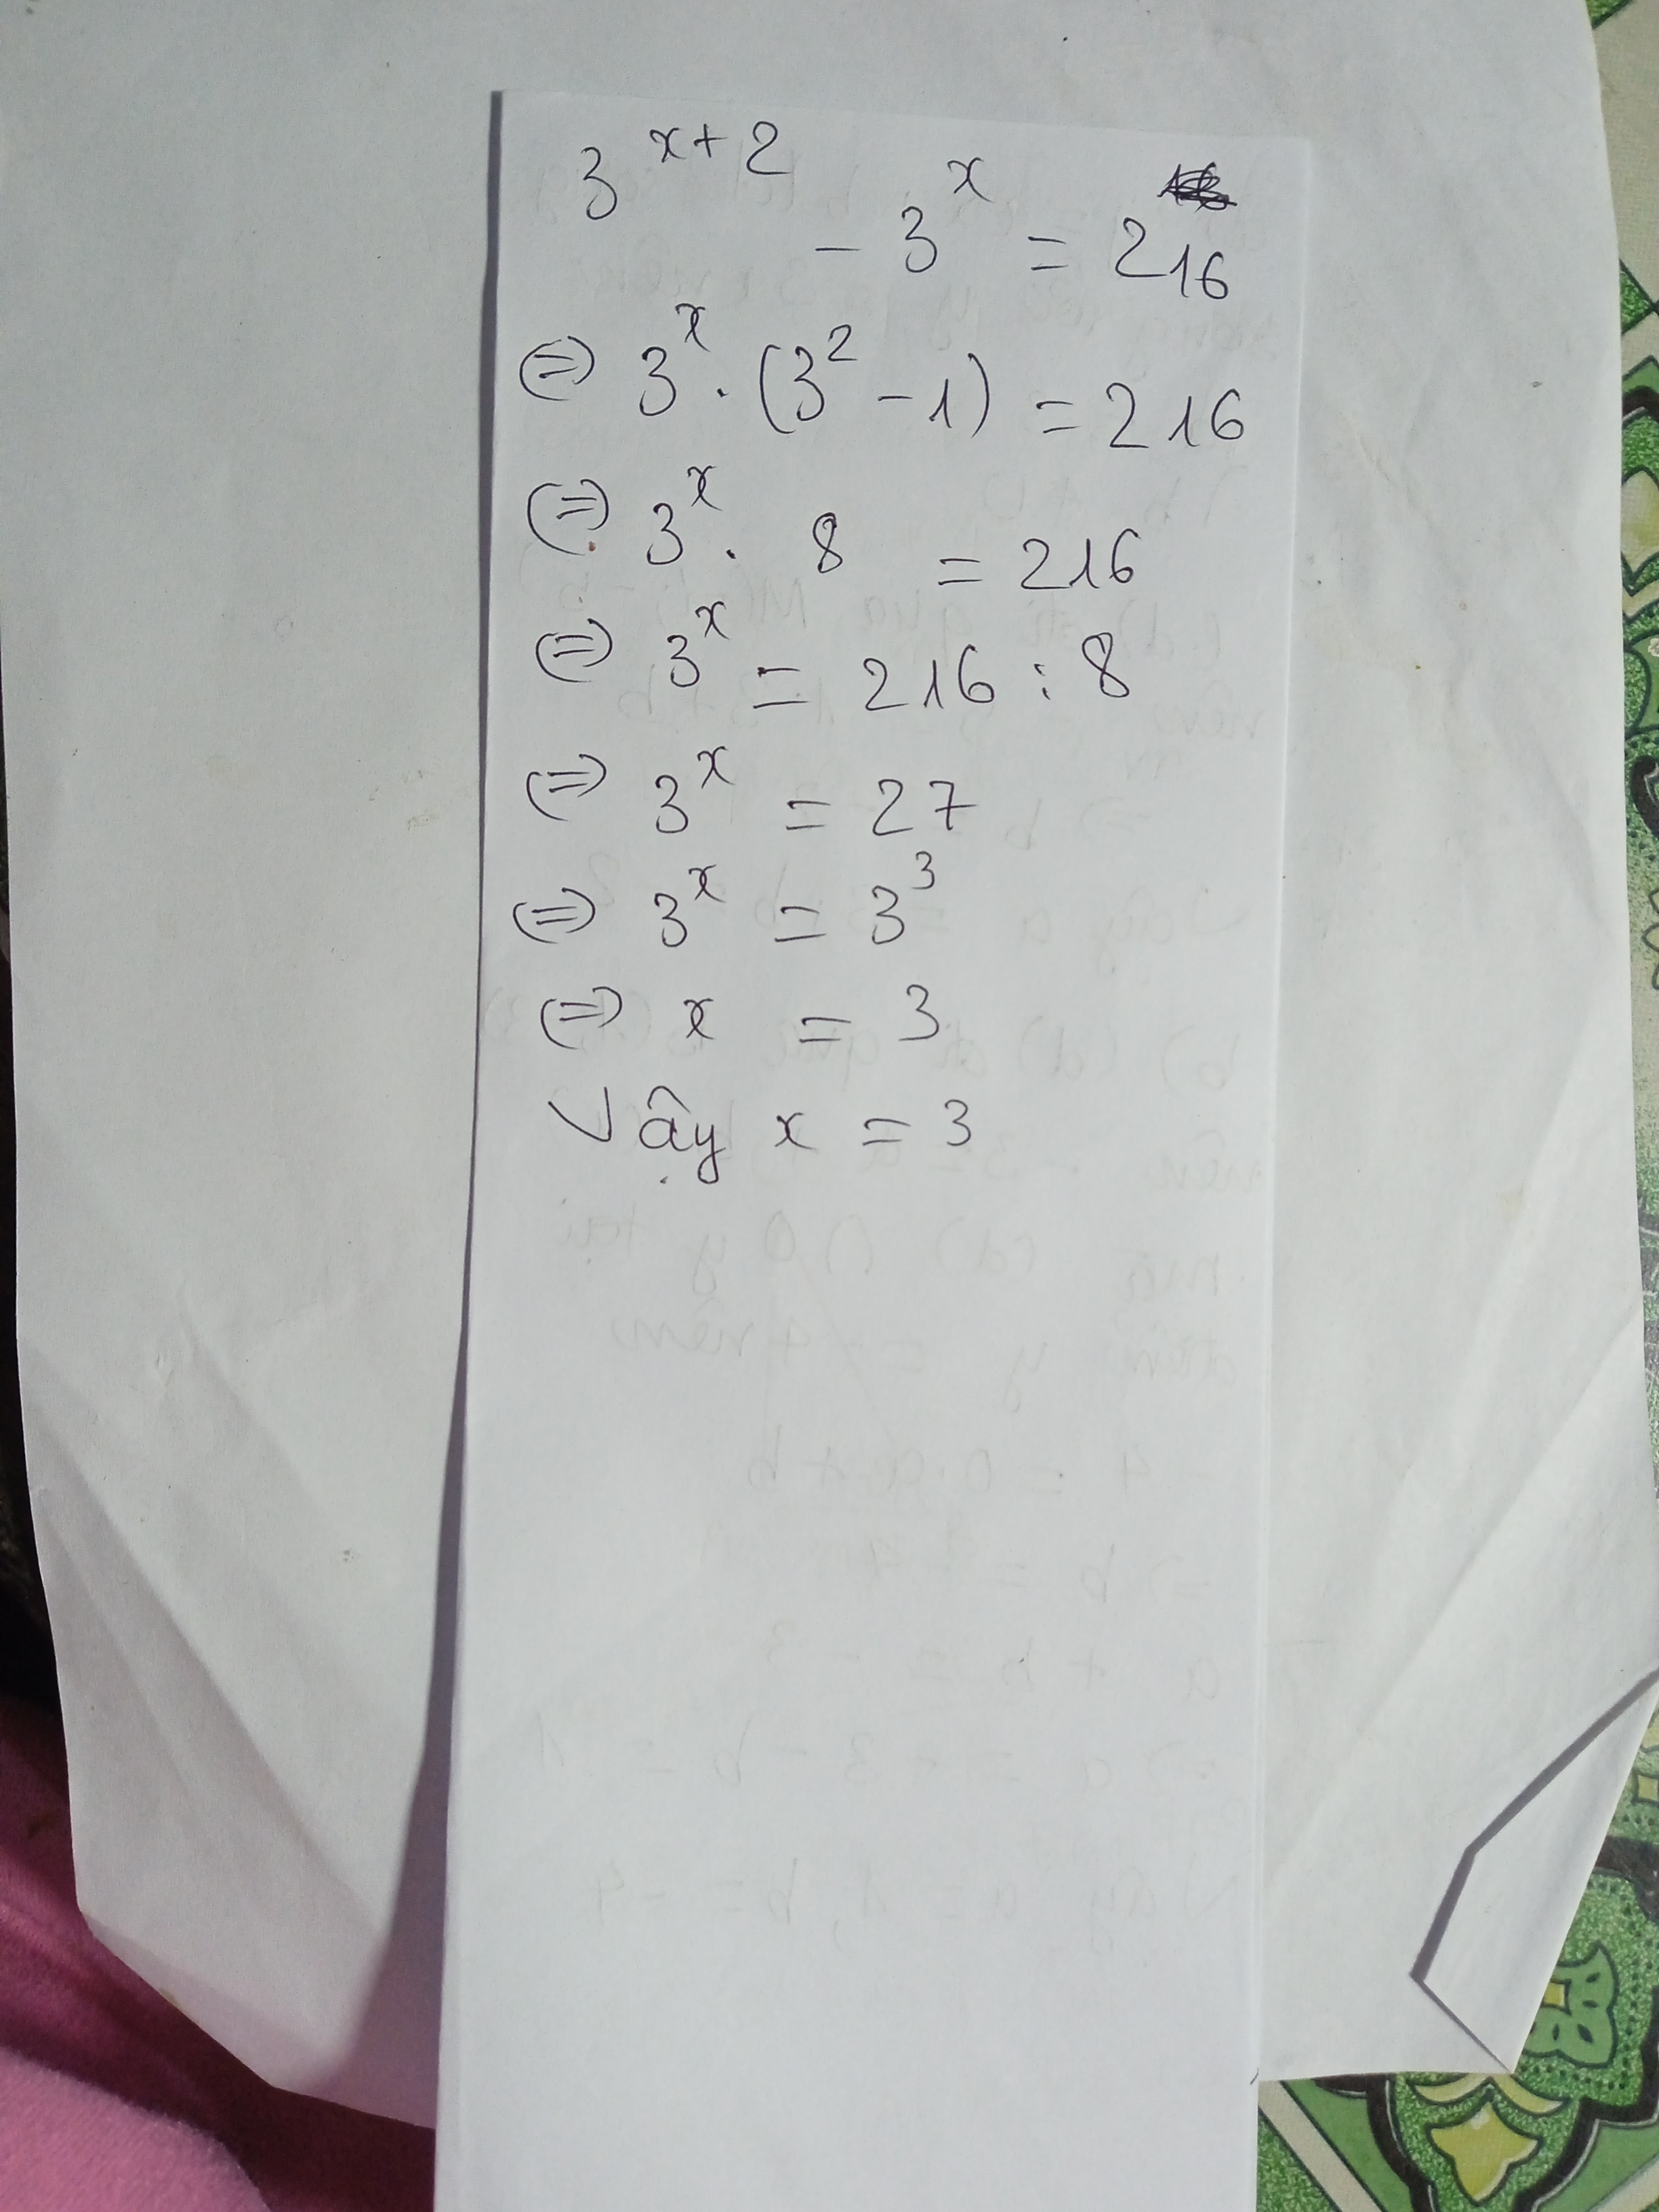 3^{x+2} - 3^x = 216
⇔ 3^x . (3^2 - 1) = 216
⇔ 3^x . 8 = 216
⇔ 3^x = 216 : 8
⇔ 3^x = 27
⇔ 3^x = 3^3
⇔ x = 3
Vậy x = 3